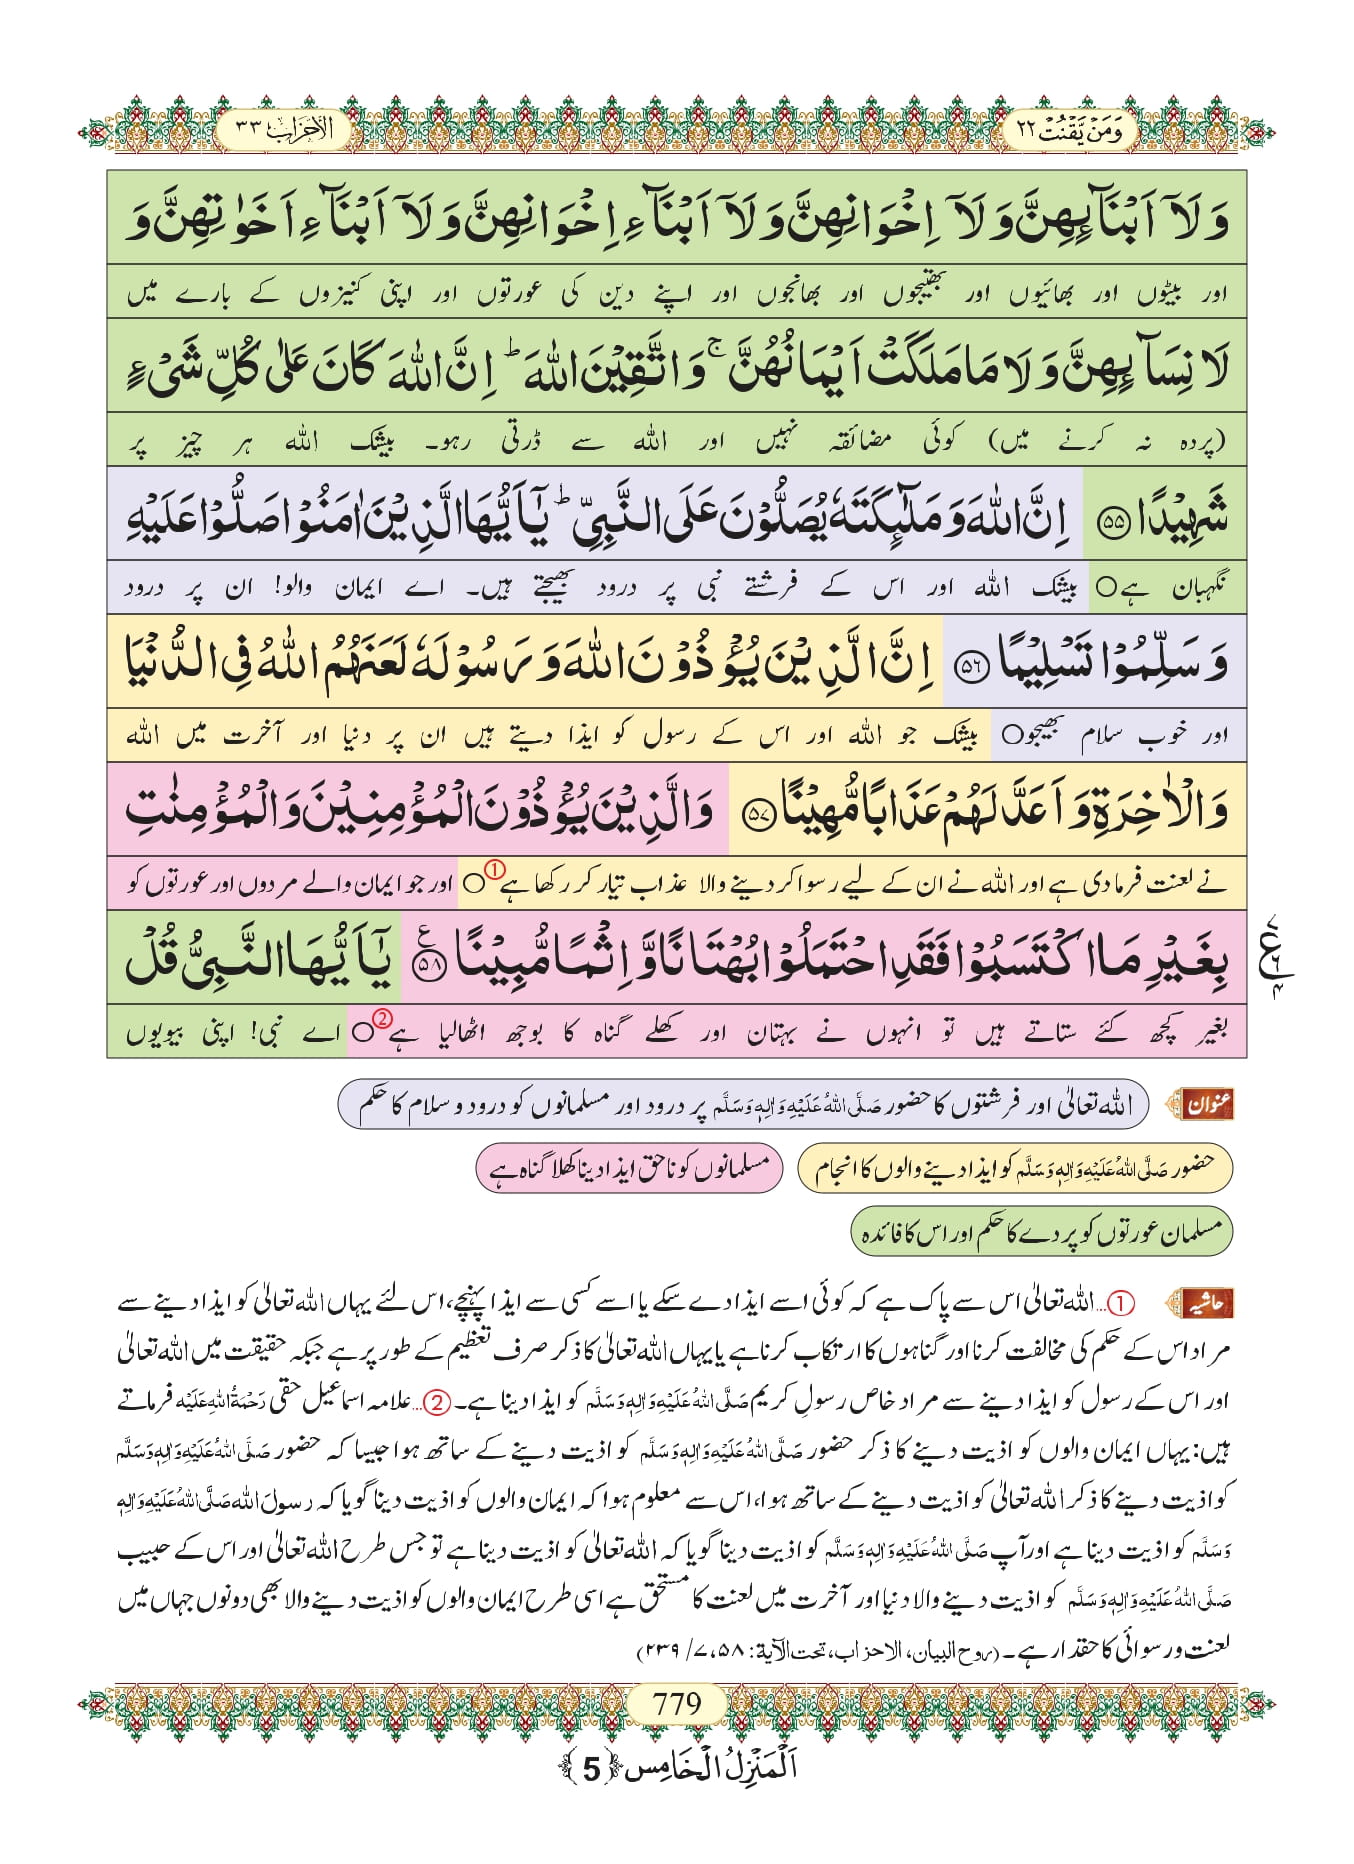 وَمَنْ یَّقْنُتْ ۲۲
الاحزاب ۳۳
وَ لَاۤ اَبْنَآىٕهِنَّ وَ لَاۤ اِخْوَانِهِنَّ وَ لَاۤ اَبْنَآءِ اِخْوَانِهِنَّ وَ لَاۤ اَبْنَآءِ اَخَوٰتِهِنَّ وَ
اور بیٹوں اور بھائیوں اور بھتیجوں اور بھانجوں اور اپنے دین کی عورتوں اور اپنی کنیزوں کے بارے میں
لَا نِسَآىٕهِنَّ وَ لَا مَا مَلَكَتْ اَیْمَانُهُنَّۚ وَ اتَّقِیْنَ اللّٰهَؕ اِنَّ اللّٰهَ كَانَ عَلٰى كُلِّ شَیْءٍ
(پردہ نہ کرنے میں) کوئی مضائقہ نہیں اور اللہ سے ڈرتی رہو۔ بیشک اللہ ہر چیز پر
شَهِیْدًا ﴿۵۵﴾ اِنَّ اللّٰهَ وَ مَلٰٓىٕكَتَهٗ یُصَلُّوْنَ عَلَى النَّبِیِّؕ یٰۤاَیُّهَا الَّذِیْنَ اٰمَنُوْا صَلُّوْا عَلَیْهِ
نگہبان ہے○ بیشک اللہ اور اس کے فرشتے نبی پر درود بھیجتے ہیں۔ اے ایمان والو! ان پر درود
وَ سَلِّمُوْا تَسْلِیْمًا ﴿۵۶﴾ اِنَّ الَّذِیْنَ یُؤْذُوْنَ اللّٰهَ وَ رَسُوْلَهٗ لَعَنَهُمُ اللّٰهُ فِی الدُّنْیَا
اور خوب سلام بھیجو○ بیشک جو اللہ اور اس کے رسول کو ایذا دیتے ہیں ان پر دنیا اور آخرت میں اللہ
وَ الْاٰخِرَةِ وَ اَعَدَّ لَهُمْ عَذَابًا مُّهِیْنًا ﴿۵۷﴾ وَ الَّذِیْنَ یُؤْذُوْنَ الْمُؤْمِنِیْنَ وَ الْمُؤْمِنٰتِ
نے لعنت فرمادی ہے اور اللہ نے ان کے لیے رسوا کر دینے والا عذاب تیار کر رکھا ہے①○ اور جو ایمان والے مردوں اور عورتوں کو
بِغَیْرِ مَا اكْتَسَبُوْا فَقَدِ احْتَمَلُوْا بُهْتَانًا وَّ اِثْمًا مُّبِیْنًا ﴿۵۸﴾ ع یٰۤاَیُّهَا النَّبِیُّ قُلْ
بغیر کچھ کئے ستاتے ہیں تو انہوں نے بہتان اور کھلے گناہ کا بوجھ اٹھالیا ہے②○ اے نبی! اپنی بیویوں
عنوان
اللہ تعالیٰ اور فرشتوں کا حضور صَلَّی اللہُ عَلَیْہِ وَاٰلِہٖ وَسَلَّم پر درود اور مسلمانوں کو درود و سلام کا حکم
حضور صَلَّی اللہُ عَلَیْہِ وَاٰلِہٖ وَسَلَّم کو ایذا دینے والوں کا انجام
مسلمانوں کو ناحق ایذا دینا کھلا گناہ ہے
مسلمان عورتوں کو پردے کا حکم اور اس کا فائدہ
حاشیہ
①...اللہ تعالیٰ اس سے پاک ہے کہ کوئی اسے ایذا دے سکے یا اسے کسی سے ایذا پہنچے، اس لئے یہاں اللہ تعالیٰ کو ایذا دینے سے
مراد اس کے حکم کی مخالفت کرنا اور گناہوں کا ارتکاب کرنا ہے یا یہاں اللہ تعالیٰ کا ذکر صرف تعظیم کے طور پر ہے جبکہ حقیقت میں اللہ تعالیٰ
اور اس کے رسول کو ایذا دینے سے مراد خاص رسولِ کریم صَلَّی اللہُ عَلَیْہِ وَاٰلِہٖ وَسَلَّم کو ایذا دینا ہے۔ ②...علامہ اسماعیل حقی رَحْمَۃُ اللہِ عَلَیْہ فرماتے
ہیں: یہاں ایمان والوں کو اذیت دینے کا ذکر حضور صَلَّی اللہُ عَلَیْہِ وَاٰلِہٖ وَسَلَّم کو اذیت دینے کے ساتھ ہوا جیسا کہ حضور صَلَّی اللہُ عَلَیْہِ وَاٰلِہٖ وَسَلَّم
کو اذیت دینے کا ذکر اللہ تعالیٰ کو اذیت دینے کے ساتھ ہوا، اس سے معلوم ہوا کہ ایمان والوں کو اذیت دینا گویا کہ رسولُ اللہ صَلَّی اللہُ عَلَیْہِ وَاٰلِہٖ
وَسَلَّم کو اذیت دینا ہے اور آپ صَلَّی اللہُ عَلَیْہِ وَاٰلِہٖ وَسَلَّم کو اذیت دینا گویا کہ اللہ تعالیٰ کو اذیت دینا ہے تو جس طرح اللہ تعالیٰ اور اس کے حبیب
صَلَّی اللہُ عَلَیْہِ وَاٰلِہٖ وَسَلَّم کو اذیت دینے والا دنیا اور آخرت میں لعنت کا مستحق ہے اسی طرح ایمان والوں کو اذیت دینے والا بھی دونوں جہاں میں
لعنت و رسوائی کا حقدار ہے۔ (روح البیان، الاحزاب، تحت الآیۃ: ۵۸، ۷/ ۲۳۹)
779
اَلْمَنْزِلُ الْخَامِس ﴿5﴾